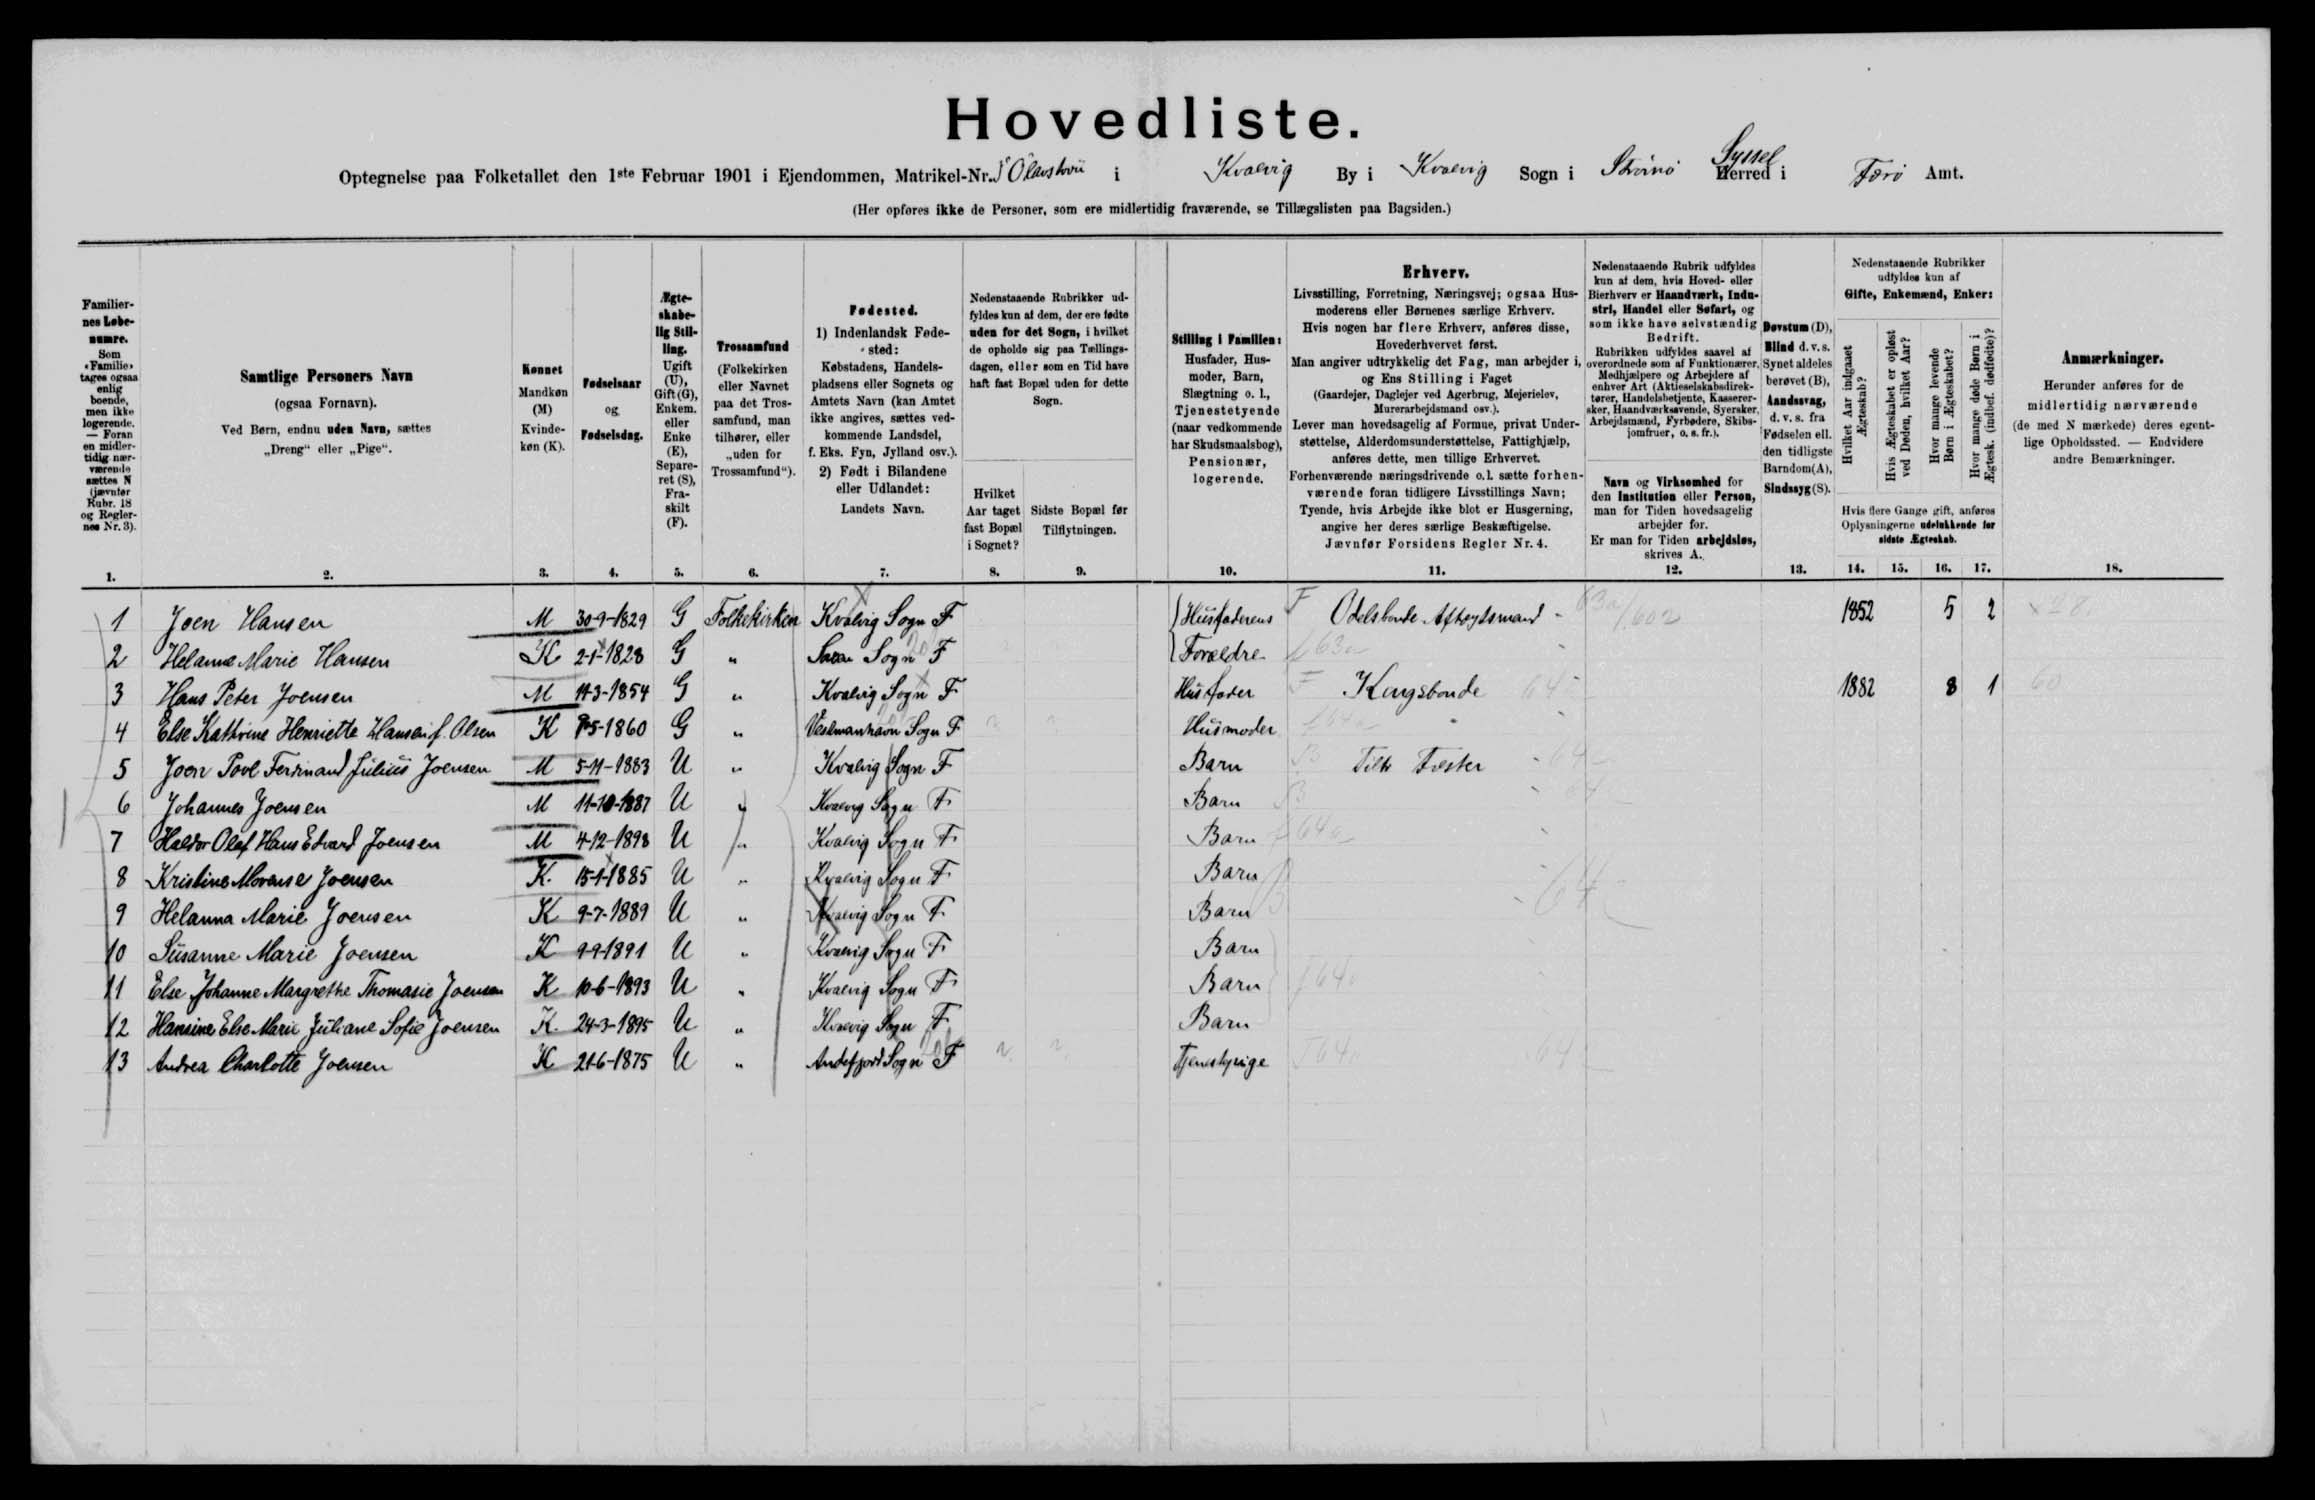 Hovedliste.
Optegnelse paa Folketallet den 1ste Februar 1901 i Ejendommen, Matrikel-Nr. i Kvalvig By i Kvalvig Sogn i Strömö Syssel Herred i Færö Amt.
(Her opføres ikke de Personer, som ere midlertidig fraværende, se Tillægslisten paa Bagsiden.)
Familiernes Løbenumre. Som «Familie» tages ogsaa enlig boende, men ikke logerende. — Foran en midlertidig nærværende sættes N (jævnfør Rubr. 18 og Reglernes Nr. 3).
Samtlige Personers Navn
(ogsaa Fornavn).
Ved Børn, endnu uden Navn, sættes
„Dreng“ eller „Pige“.
Kønnet
Mandkøn (M)
Kvindekøn (K).
Fødselsaar
og
Fødselsdag.
Ægteskabelig Stilling. Ugift (U), Gift (G), Enkem. eller Enke (E), Separeret (S), Fraskilt (F).
Trossamfund
(Folkekirken eller Navnet paa det Trossamfund, man tilhører, eller „uden for Trossamfund“).
Fødested.
1) Indenlandsk Fødested:
Købstadens, Handelspladsens eller Sognets og Amtets Navn (kan Amtet ikke angives, sættes vedkommende Landsdel, f. Eks. Fyn, Jylland osv.).
2) Født i Bilandene eller Udlandet:
Landets Navn.
Nedenstaaende Rubrikker udfyldes kun af dem, der ere fødte uden for det Sogn, i hvilket de opholde sig paa Tællingsdagen, eller som en Tid have haft fast Bopæl uden for dette Sogn.
Hvilket Aar taget fast Bopæl i Sognet?
Sidste Bopæl før Tilflytningen.
Stilling i Familien:
Husfader, Husmoder, Barn, Slægtning o. l., Tjenestetyende (naar vedkommende har Skudsmaalsbog), Pensionær, logerende.
Erhverv.
Livsstilling, Forretning, Næringsvej; ogsaa Husmoderens eller Børnenes særlige Erhverv.
Hvis nogen har flere Erhverv, anføres disse, Hovederhvervet først.
Man angiver udtrykkelig det Fag, man arbejder i, og Ens Stilling i Faget
(Gaardejer, Daglejer ved Agerbrug, Mejerielev, Murerarbejdsmand osv.).
Lever man hovedsagelig af Formue, privat Understøttelse, Alderdomsunderstøttelse, Fattighjælp, anføres dette, men tillige Erhvervet.
Forhenværende næringsdrivende o. l. sætte forhenværende foran tidligere Livsstillings Navn;
Tyende, hvis Arbejde ikke blot er Husgerning, angive her deres særlige Beskæftigelse.
Jævnfør Forsidens Regler Nr. 4.
Nedenstaaende Rubrik udfyldes kun af dem, hvis Hoved- eller Bierhverv er Haandværk, Industri, Handel eller Søfart, og som ikke have selvstændig Bedrift.
Rubrikken udfyldes saavel af overordnede som af Funktionærer, Medhjælpere og Arbejdere af enhver Art (Aktieselskabsdirektører, Handelsbetjente, Kasserersker, Haandværkssvende, Syersker, Arbejdsmænd, Fyrbødere, Skibsjomfruer, o. s. fr.).
Navn og Virksomhed for den Institution eller Person, man for Tiden hovedsagelig arbejder for.
Er man for Tiden arbejdsløs, skrives A.
Døvstum (D), Blind d. v. s. Synet aldeles berøvet (B), Aandssvag, d. v. s. fra Fødselen ell. den tidligste Barndom (A), Sindssyg (S).
Nedenstaaende Rubrikker udfyldes kun af
Gifte, Enkemænd, Enker:
Hvilket Aar indgaaet Ægteskab?
Hvis Ægteskabet er opløst ved Døden, hvilket Aar?
Hvor mange levende Børn i Ægteskabet?
Hvor mange døde Børn i Ægtesk. (indbef. dødfødte)?
Hvis flere Gange gift, anføres Oplysningerne udelukkende for sidste Ægteskab.
Anmærkninger.
Herunder anføres for de midlertidig nærværende (de med N mærkede) deres egentlige Opholdssted. — Endvidere andre Bemærkninger.
1. 2. 3. 4. 5. 6. 7. 8. 9. 10. 11. 12. 13. 14. 15. 16. 17. 18.
1 Joen Hansen M 30-9-1829 G Folkekirken Kvalvig Sogn F Husfaderens F Odelsbonde Aftægtsmand 1852 5 2
2 Helanna Marie Hansen K 2-1-1828 G " Sogn F Forældre f 63a
3 Hans Peter Joensen M 11-3-1854 G " Kvalvig Sogn F Husfader F Kongsbonde 64 1882 8 1 60
4 Else Kathrine Henriette Hansen f. Olsen K 5-1860 G " Vestmanhavn Sogn F Husmoder f 64a "
5 Joen Povl Ferdinand Julius Joensen M 5-11-1883 U " Kvalvig Sogn F Barn B 64
6 Johannes Joensen M 11-10-1887 U " Kvalvig Sogn F Barn B 64
7 Haldor Olaf Hans Edvard Joensen M 4-12-1898 U " Kvalvig Sogn F Barn f 64a
8 Kristine Morense Joensen K. 15-1-1885 U " Kvalvig Sogn F Barn
9 Helanna Marie Joensen K 9-7-1889 U " Kvalvig Sogn F Barn B 64
10 Susanne Marie Joensen K 9-9-1891 U " Kvalvig Sogn F Barn
11 Else Johanne Margrethe Thomasie Joensen K 10-6-1893 U " Kvalvig Sogn F Barn f 64a
12 Hansine Else Marie Juliane Sofie Joensen K. 24-3-1895 U " Kvalvig Sogn F Barn
13 Andrea Charlotte Joensen K 21-6-1875 U " Andefjord Sogn F Tjenestepige T 64a 64